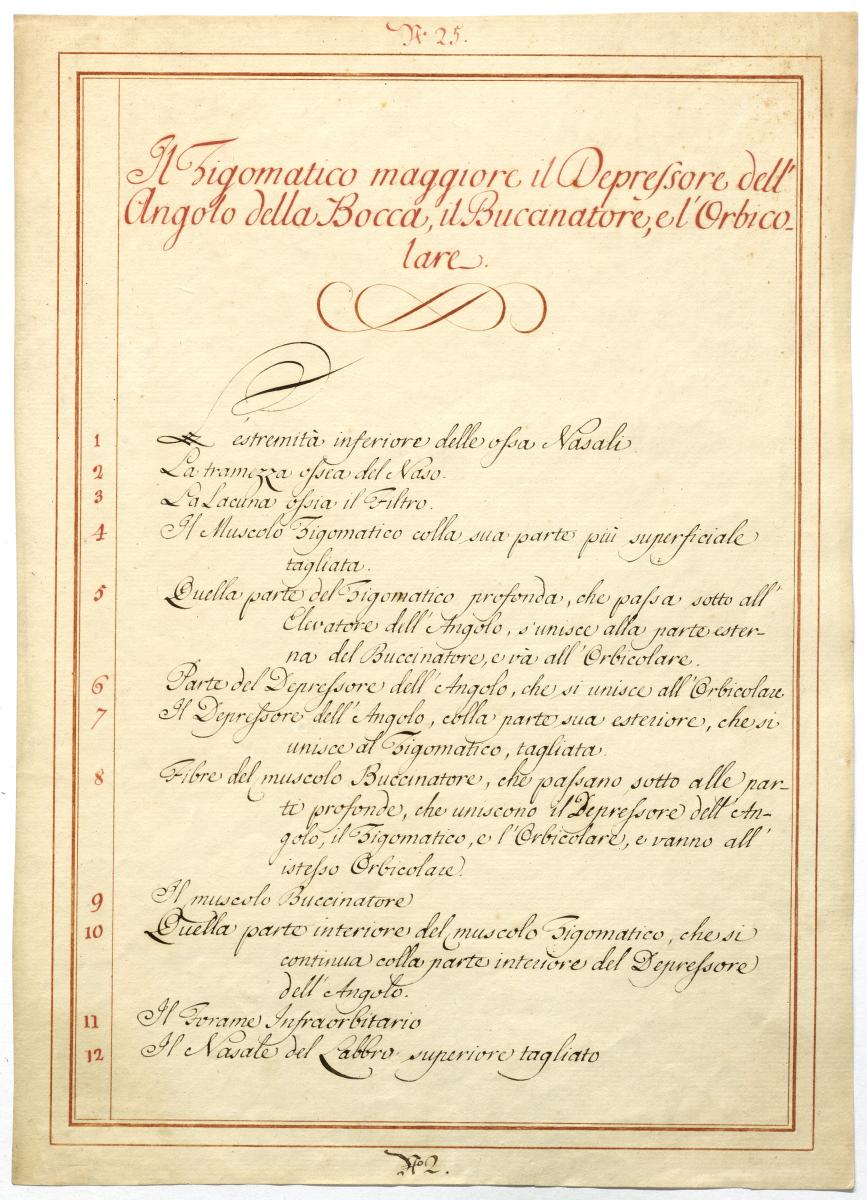 N.° 25.
Il Zigomatico maggiore il Depreſsore dell'
Angolo della Bocca, il Buccinatore, e l'Orbico-
lare.
1 L'estremità inferiore delle oſsa Nasali
2 La tramezza oſsea del Naso.
3 La Lacuna oſsia il Filtro.
4 Il Muscolo Zigomatico colla sua parte più superficiale
tagliata.
5 Quella parte del Zigomatico profonda, che paſsa sotto all'
Elevatore dell'Angolo, s'unisce alla parte ester-
na del Buccinatore, e và all'Orbicolare.
6 Parte del Depreſsore dell'Angolo, che si unisce all'Orbicolare
7 Il Depreſsore dell'Angolo, colla parte sua esteriore, che si
unisce al Zigomatico, tagliata.
8 Fibre del muscolo Buccinatore, che paſsano sotto alle par-
te profonde, che uniscono il Depreſsore dell'An-
golo, il Zigomatico, e l'Orbicolare, e vanno all'
istesso Orbicolare.
9 Il muscolo Buccinatore
10 Quella parte interiore del muscolo Zigomatico, che si
continua colla parte interiore del Depreſsore
dell'Angolo.
11 Il Forame Infraorbitario
12 Il Nasale del Labbro superiore tagliato
N.° 2.